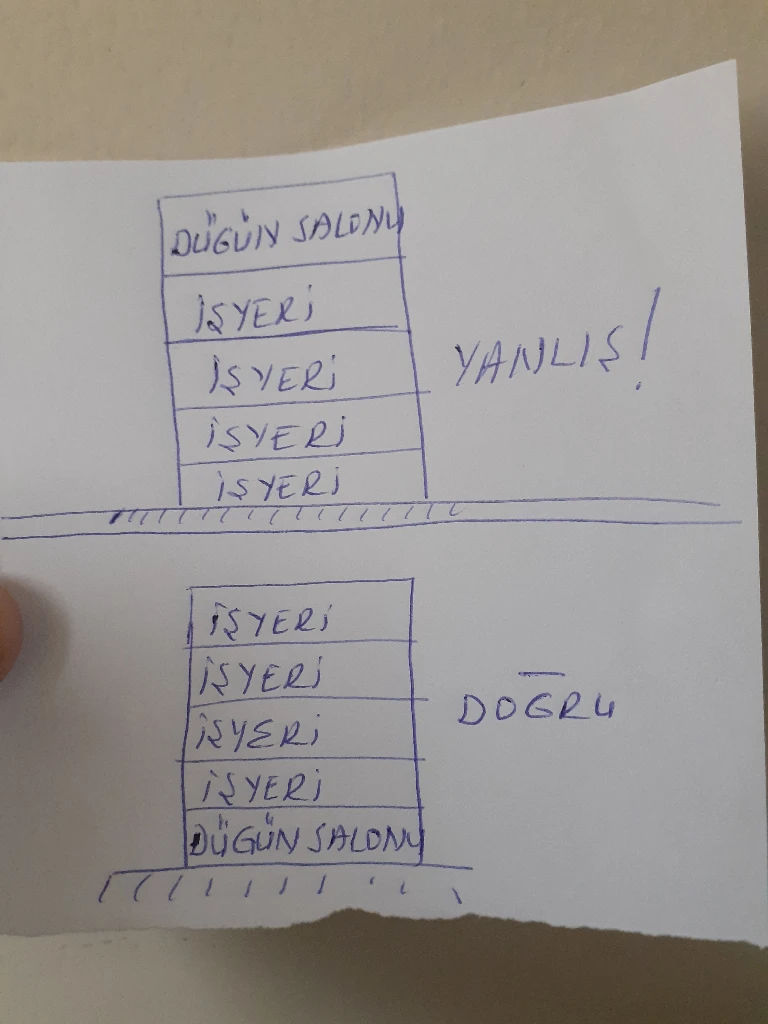 DÜGÜN SALONU
İŞYERİ
İŞYERİ
YANLIŞ!
İŞYERİ
İŞYERİ
İŞYERİ
İŞYERİ
İŞYERİ
DOĞRU
İŞYERİ
DÜGÜN SALONU